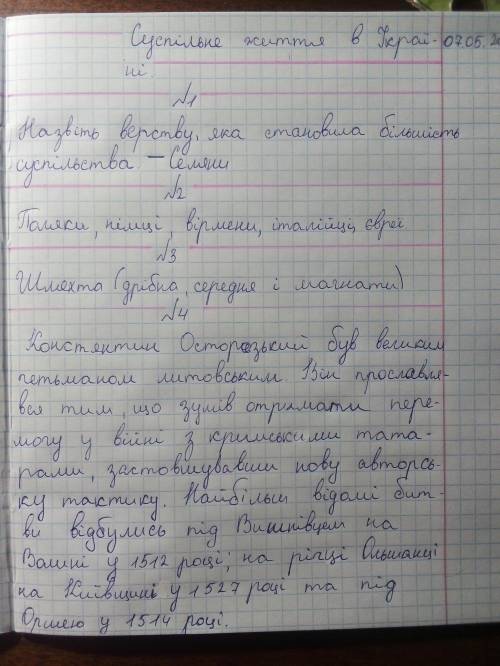 Суспільне життя в Украї- 07.05.
ні.
№1
Назвіть верству, яка становила більшість
суспільства – Семяни
№2
Поляки, німці, вірмени, італійці, євреї
№3
Шляхта (дрібна, середня і магнати)
№4
Констянтин Осторозький був великим
гетьманом литовським. Він прославля-
вся тим, що зумів отримати пере-
могу у війні з кримськими тата-
рами, застовшувавши нову авторсь-
ку тактику. Найбільш відомі бит-
ви відбулись під Вишнівцем на
Волині у 1512 році; на річці Ольшанці
на Київщині у 1527 році та під
Оршею у 1514 році.